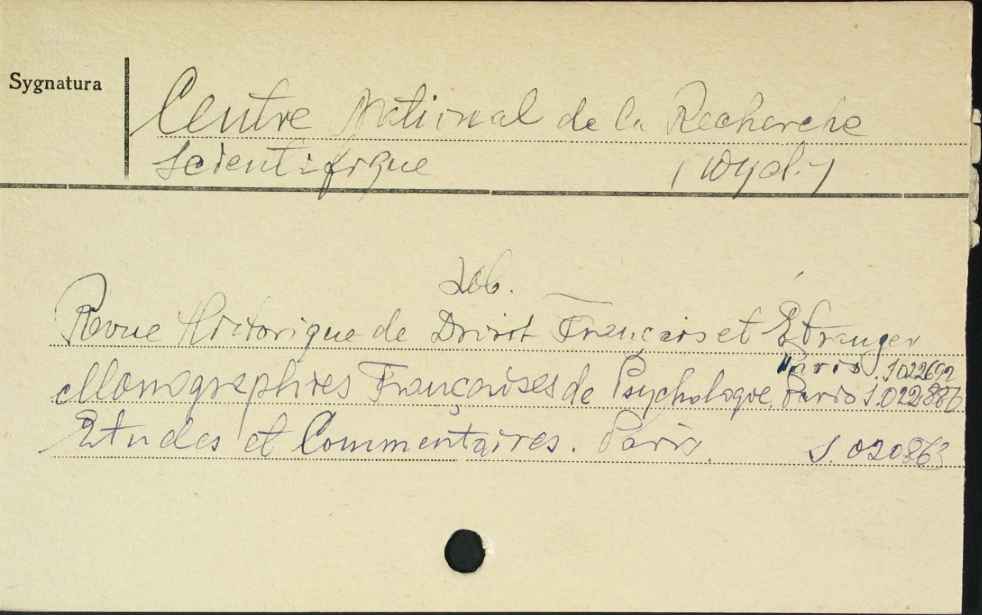 Sygnatura
Centre National de la Recherche
Scientifique (Wyd.)
Zob.
Revue Historique de Droit Français et Étranger
Paris J.022692
Monographies Françaises de Psychologie Paris J.022886
Etudes et Commentaires. Paris. J.020863